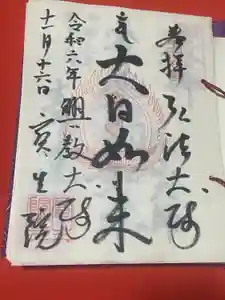 奉拝
弘法大師
大日如来
興教大師
令和六年
十一月十六日
寶生院